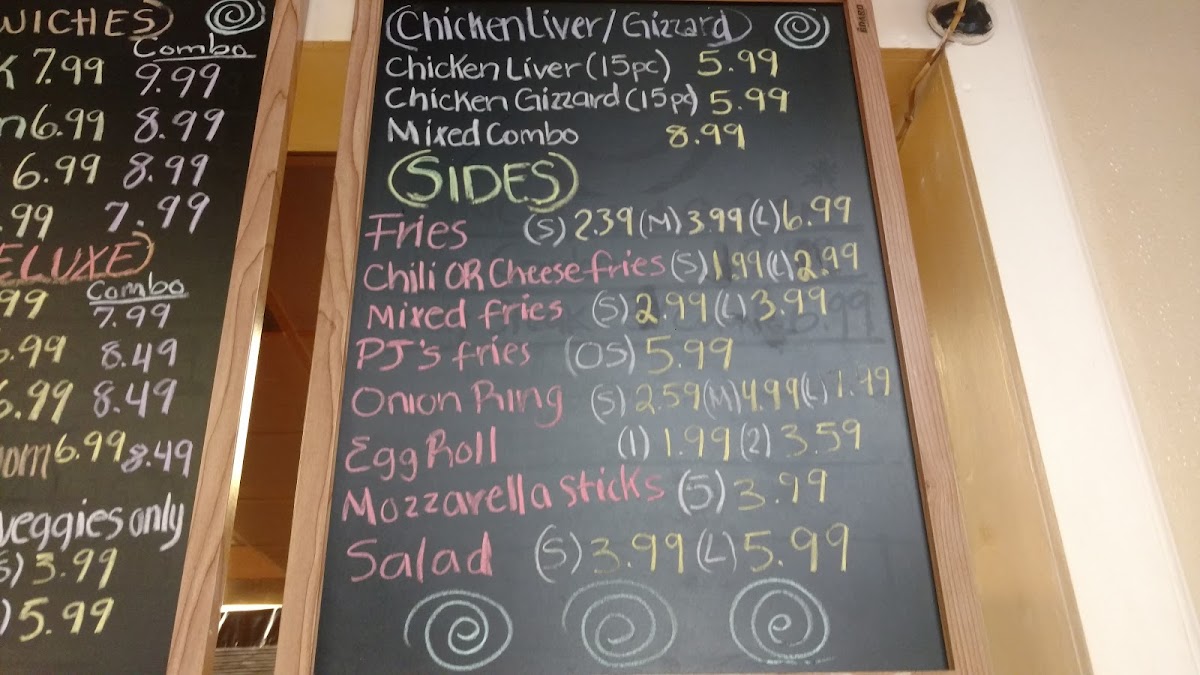 WICHES)
Combo
K 7.99 9.99
n 6.99 8.99
6.99 8.99
.99 7.99
ELUXE)
Combo
99 7.99
.99 8.49
6.99 8.49
oom 6.99 8.49
veggies only
S) 3.99
) 5.99
(Chicken Liver / Gizzard)
Chicken Liver (15pc) 5.99
Chicken Gizzard (15pc) 5.99
Mixed Combo 8.99
(SIDES)
Fries (S) 2.39 (M) 3.99 (L) 6.99
Chili OR Cheese fries (S) 1.99 (L) 2.99
Mixed fries (S) 2.99 (L) 3.99
PJ's fries (OS) 5.99
Onion Ring (S) 2.59 (M) 4.99 (L)
Egg Roll (1) 1.99 (2) 3.59
Mozzarella Sticks (5) 3.99
Salad (S) 3.99 (L) 5.99